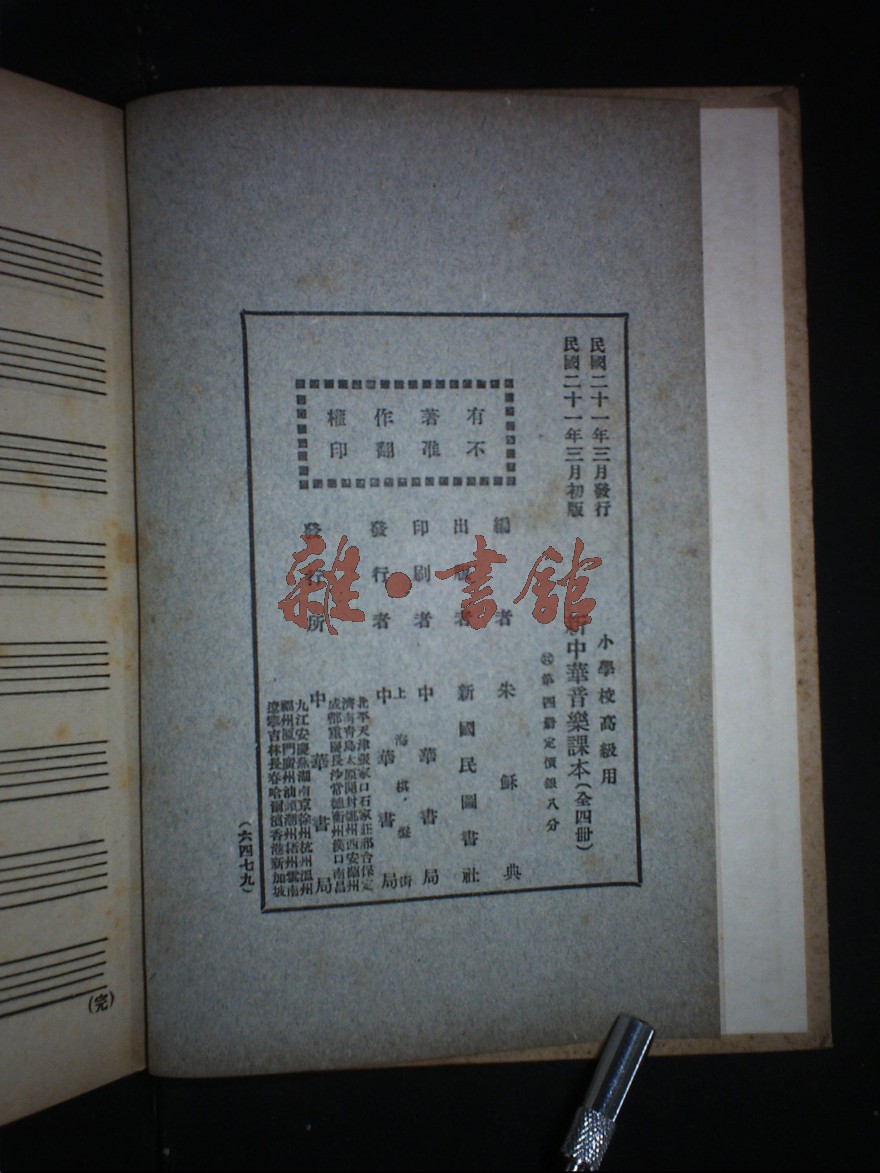 民國二十一年三月發行
民國二十一年三月初版
小學校高級用
新中華音樂課本(全四冊)
第四冊定價銀八分
有不
著准
作翻
權印
編者 朱穌典
出版者 新國民圖書社
印刷者 中華書局
上海棋盤街
發行者 中華書局
發行所 中華書局
北平天津張家口石家莊邢台保定
濟南青島太原開封鄭州西安蘭州
成都重慶長沙常德衡州漢口南昌
九江安慶蕪湖南京徐州杭州溫州
福州厦門廣州汕頭潮州梧州雲南
遼寧吉林長春哈爾濱香港新加坡
(六四七九)
(完)
雜·書館